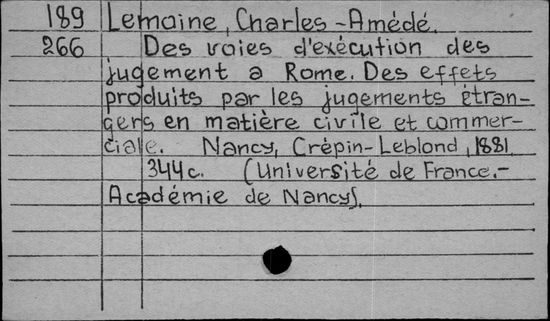 189 Lemoine, Charles-Amédé.
266 Des voies d'exécution des
jugement a Rome. Des effets
produits par les jugements étran-
gers en matière civile et commer-
ciale. Nancy, Crépin-Leblond, 1881.
344c. (Université de France.-
Académie de Nancy).